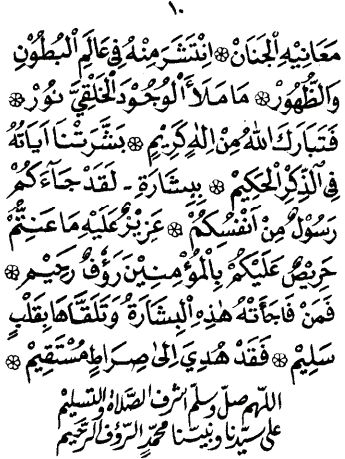 ١٠
مَعَانِيهِ الْجَنَانْ ۞ انْتَشَرَ مِنْهُ فِي عَالَمِ الْبُطُوْنِ
وَالظُّهُوْرْ ۞ مَا مَلَأَ الْوُجُوْدَ الْخَلْقِيَّ نُوْرْ ۞
فَتَبَارَكَ اللهُ مِنْ اِلٰهٍ كَرِيْمٍ ۞ بَشَّرَتْنَا اٰيَاتُهُ
فِى الذِّكْرِ الْحَكِيْمْ ۞ بِبِشَارَةِ - لَقَدْ جَآءَكُمْ
رَسُوْلٌ مِنْ اَنْفُسِكُمْ ۞ عَزِيْزٌ عَلَيْهِ مَا عَنِتُّمْ
حَرِيْصٌ عَلَيْكُمْ بِالْمُؤْمِنِيْنَ رَؤُفٌ رَحِيْمٌ ۞
فَمَنْ فَاجَأَتْهُ هٰذِهِ الْبِشَارَةُ وَتَلَقَّاهَا بِقَلْبٍ
سَلِيْمْ ۞ فَقَدْ هُدِيَ اِلىٰ صِرَاطٍ مُسْتَقِيْمْ ۞
اللهم صلّ وسلّم اشرف الصّلاة والتسليم
على سيّدنا ونبيّنا محمّدٍ الرّؤف الرّحيم